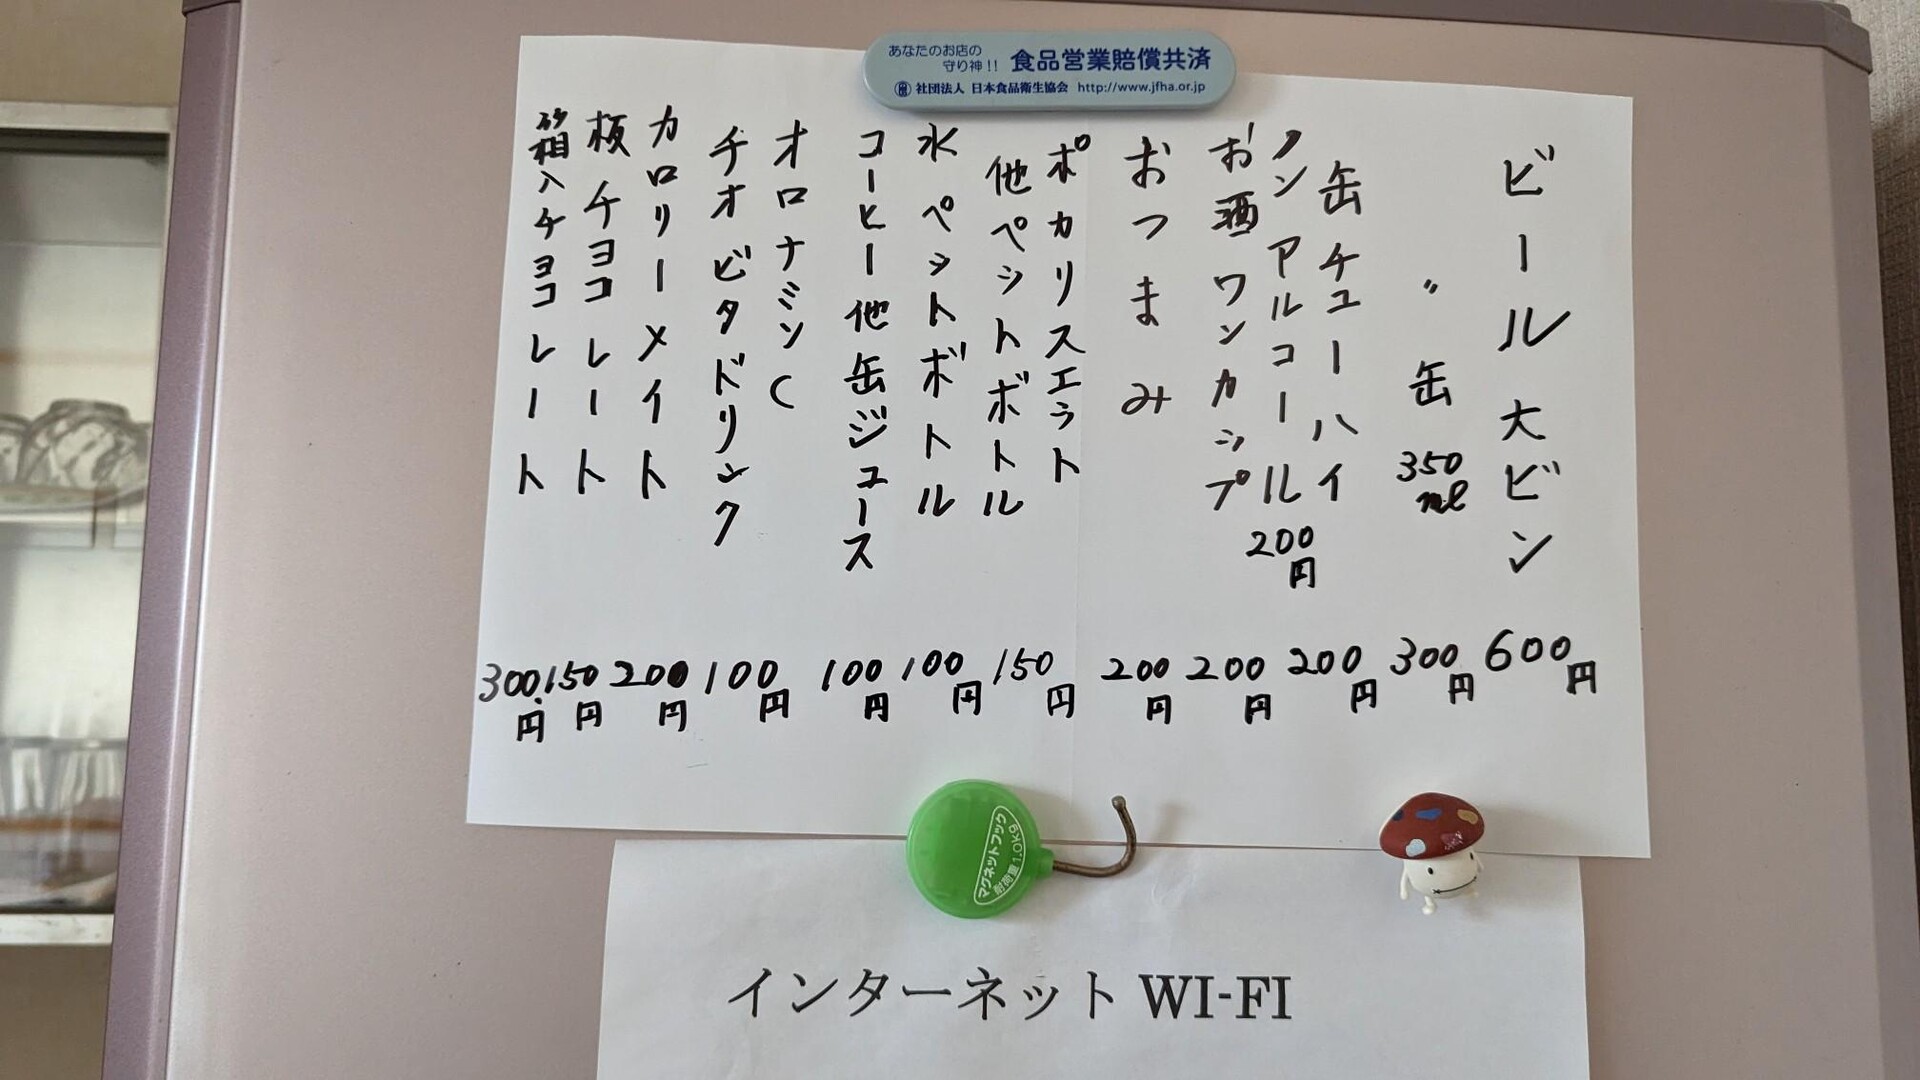 あなたのお店の
守り神!! 食品営業賠償共済
社団法人 日本食品衛生協会 http://www.jfha.or.jp
ビール大ビン 600円
〃 缶 350ml 300円
缶チューハイ 200円
ノンアルコール 200円
お酒ワンカップ 200円
おつまみ 200円
ポカリスエット
他ペットボトル 150円
水ペットボトル 100円
コーヒー他缶ジュース 100円
オロナミンC
チオビタドリンク 100円
カロリーメイト 200円
板チョコレート 150円
箱入チョコレート 300円
マグネットフック
耐荷重1.0Kg
インターネット WI-FI